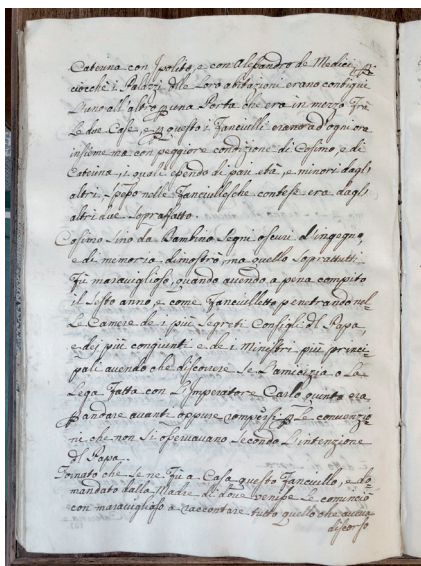 Caterina con Ipolito, e con Alesandro de Medici, p
ciocche i Palazzi delle Loro abitazioni erano contigui
L'uno all'altro p una Porta che era in mezzo frà
Le due Case, e p questo i Fanciulli erano ad ogni ora
insieme ma con peggiore condizione di Cosimo, e di
Caterina, i quali essendo di pari età, e minori dagli
altri spesso nelle Fanciullesche contese era dagli
altri due sopraffatto.
Cosimo sino da Bambino segni oscuri d'ingegno,
e di memoria dimostrò, ma quello soprattutti
Fù maraviglioso, quando avendo a pena compito
il sesto anno, e come Fanciulletto penetrando nel=
Le Camere de i più segreti Consigli dl Papa,
e dei più congiunti e de i Ministri più princi=
pali avendo che discorrere se L'amicizia o La
Lega Fatta con L'Imperatore Carlo quinto era
p andare avanti oppure rompersi p Le convenzio=
ni che non si osservavano secondo L'intenzione
dl Papa.
Tornato che se ne Fù a Casa questo Fanciullo, e do
mandato dalla Madre di dove venisse Le cominciò
con maraviglioso a raccontare tutto quello che aveva
discorso